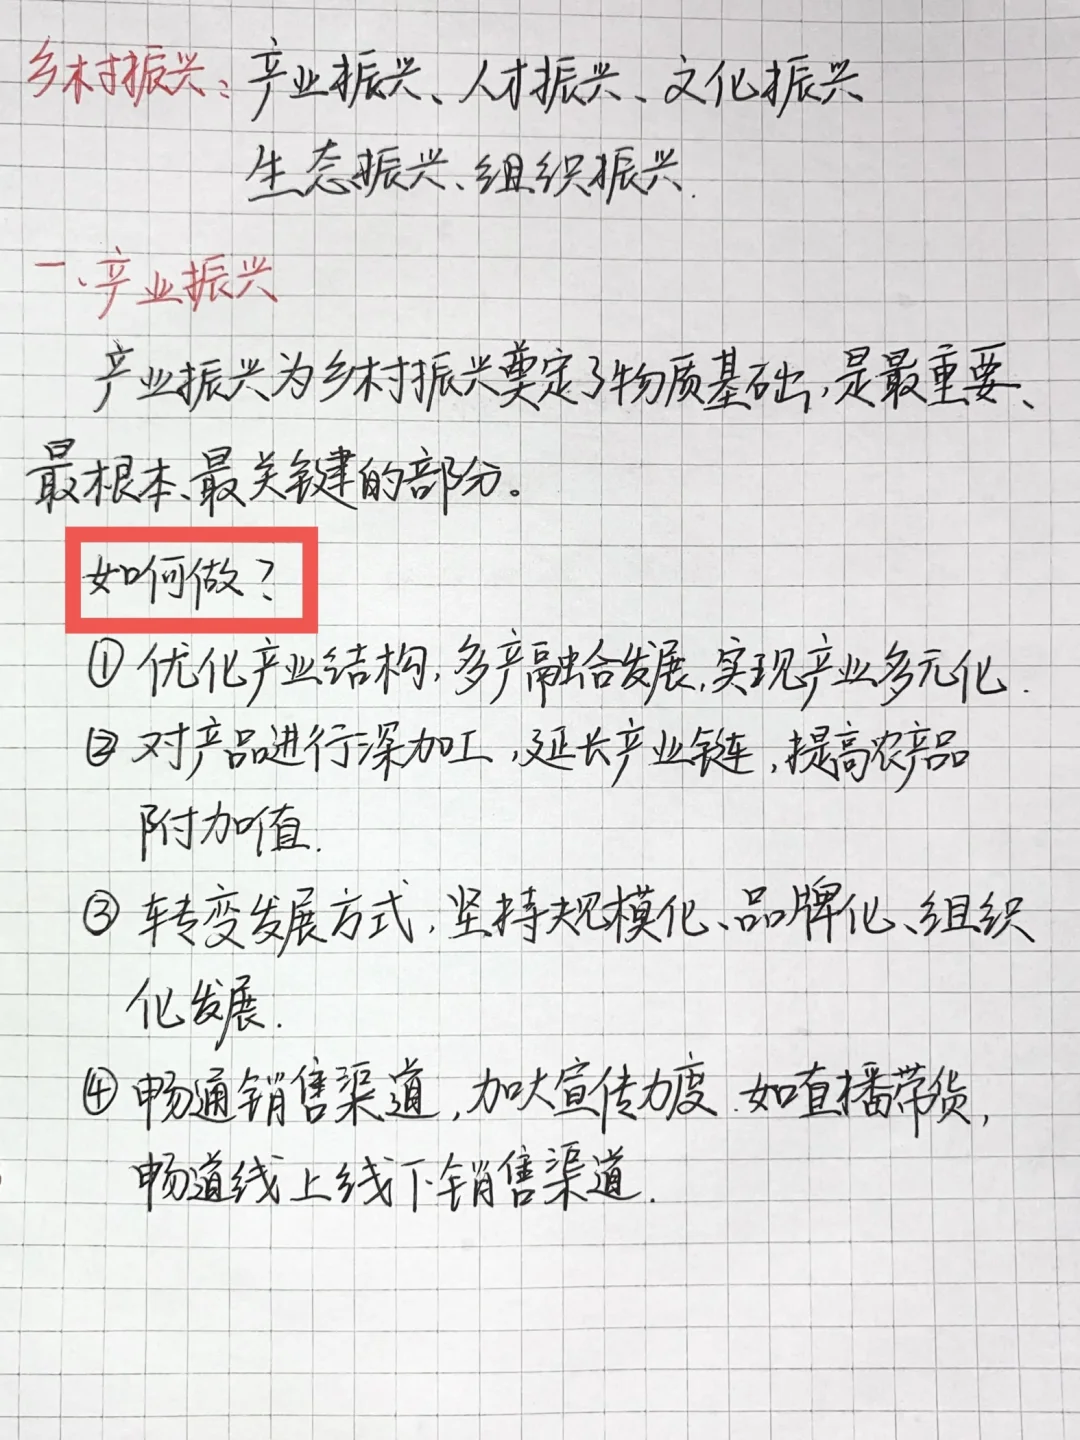 乡村振兴：产业振兴、人才振兴、文化振兴
生态振兴、组织振兴.
一、产业振兴
产业振兴为乡村振兴奠定了物质基础,是最重要、
最根本、最关键的部分。
如何做?
① 优化产业结构,多产融合发展,实现产业多元化.
② 对产品进行深加工,延长产业链,提高农产品
附加值.
③ 转变发展方式,坚持规模化、品牌化、组织
化发展.
④ 畅通销售渠道,加大宣传力度.如直播带货,
畅道线上线下销售渠道.